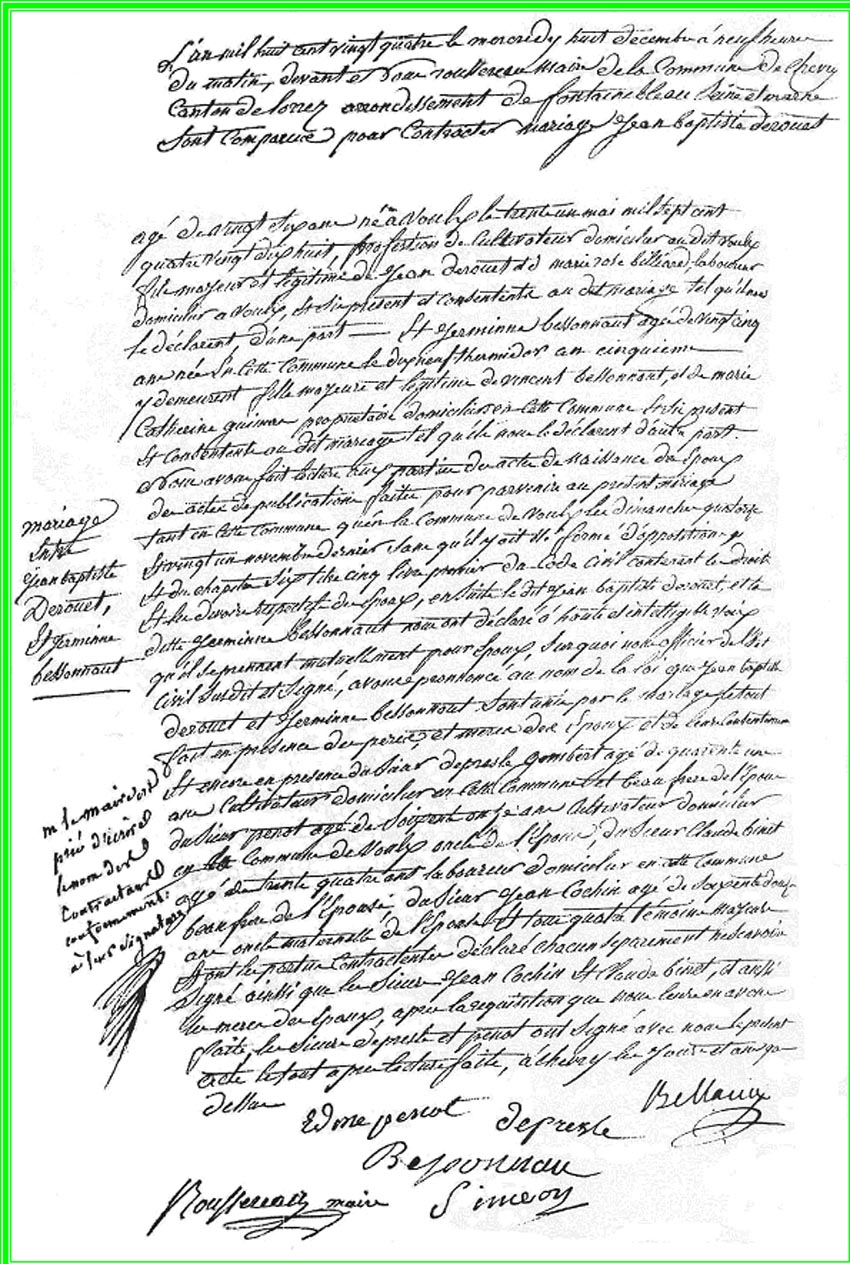 L'an mil huit cent vingt quatre le mercredy huit décembre à neuf heures
du matin, devant et Nous roussereau Maire de la Commune de Chevry
Canton de lorrez arrondissement de fontainebleau Seine et marne
Sont Comparus pour Contracter mariage Jean baptiste derouet
agé de vingt six ans né à Voulx le trente un mai mil sept cent
quatre vingt dix huit, profession de Cultivateur domicilier au dit voulx
fils mazeur et légitime de Jean derouet et d marie rose billiard laboureur
domicilier a Voulx, et ici présent et consentente au dit mariage tel qu'il nous
le déclarent, d'une part — Et Germinne bessonnaut agé de vingt cinq
ans née En Cette Commune le dix neuf thermidor an cinquieme
y demeurent fille mazeure et legitime de vincent bessonnaut, et de marie
Catherine guimar propriétaire domicilier en Cette Commune Et ici présent
Et Consentente au dit mariage tel qu'ils nous le déclarent d'autre part.
Nous avons fait lecture aux parties des actes de Naissance des Epoux
des actes de publications faites pour parvenir au présent mariage
tant en Cette Commune qu'en la Commune de Voulx les dimanches quatorze
Et vingt un novembre dernier sans qu'il y ait été formé d'opposition
Et du chapitre Six titre cinq livre premier du Code Civil contenant les droits
Et les devoirs respectif des Epoux, ensuite le dit Jean baptiste derouet, et la
ditte Germinne bessonnaut nous ont déclaré à haute et intelligible voix
qu'il se prennent mutuellement pour Epoux, Surquoi nous officier de l'Etat
Civil Susdit et Signé, avons prononcé au nom de la loi que Jean baptiste
derouet et Germinne bessonnaut Sont unis par le mariage le tout
fait en présence des peres, et meres des Epoux et de leurs Consentemens
Et encore en presence du Sieur depresle gombert agé de quarente un
ans Cultivateur domicilier en Cette Commune Et beau frere de l'Epouse
du Sieur penot agé de Soixente onze ans Cultivateur domicilier
en la Commune de Voulx oncle de l'Epoux, du Sieur Claude binet
agé de trente quatre ans laboureur domicilier en cette Commune
beau frere de l'Epouse du Sieur Jean Cochin agé de Soixente douze
ans oncle maternelle de l'Epouse Et tous quatre témoins mazeurs
Et ont les parties Contractentes déclaré chacun séparement ne Savoir
Signé ainsi que les Sieurs Jean Cochin Et Claude binet, et aussi
les meres des Epoux, apres la requisition que nous leurs en avons
faite, les Sieurs depresle et penot ont Signé avec nous le présent
acte le tout apres lecture faite, à chevry les Jours et an que
dessus
mariage
Entre
Jean baptiste
Derouet,
Et Germinne
bessonnaut
m le maire est
prié d'ecrire
le nom des
Contractans
conformement
à leurs signatures
Edme penot depresle
Bessonnau
Roussereau maire Simeon